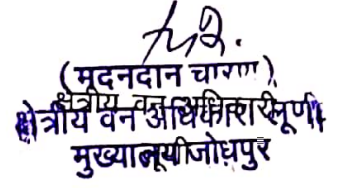 (मदनदान चारण)
क्षेत्रीय वन अधिकारी लूणी
मुख्यालय जोधपुर